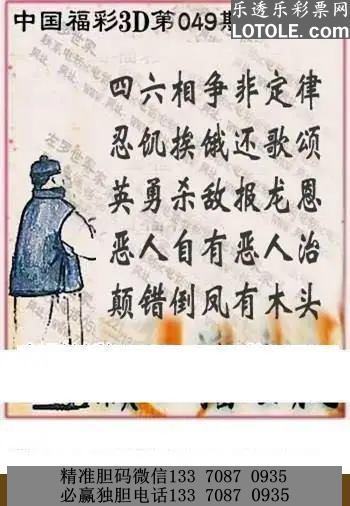 中国福彩3D第049期
乐透乐彩票网
LOTOLE.COM
四六相争非定律
忍饥挨饿还歌颂
英勇杀敌报龙恩
恶人自有恶人治
颠错倒凤有木头
精准胆码微信133 7087 0935
必赢独胆电话133 7087 0935